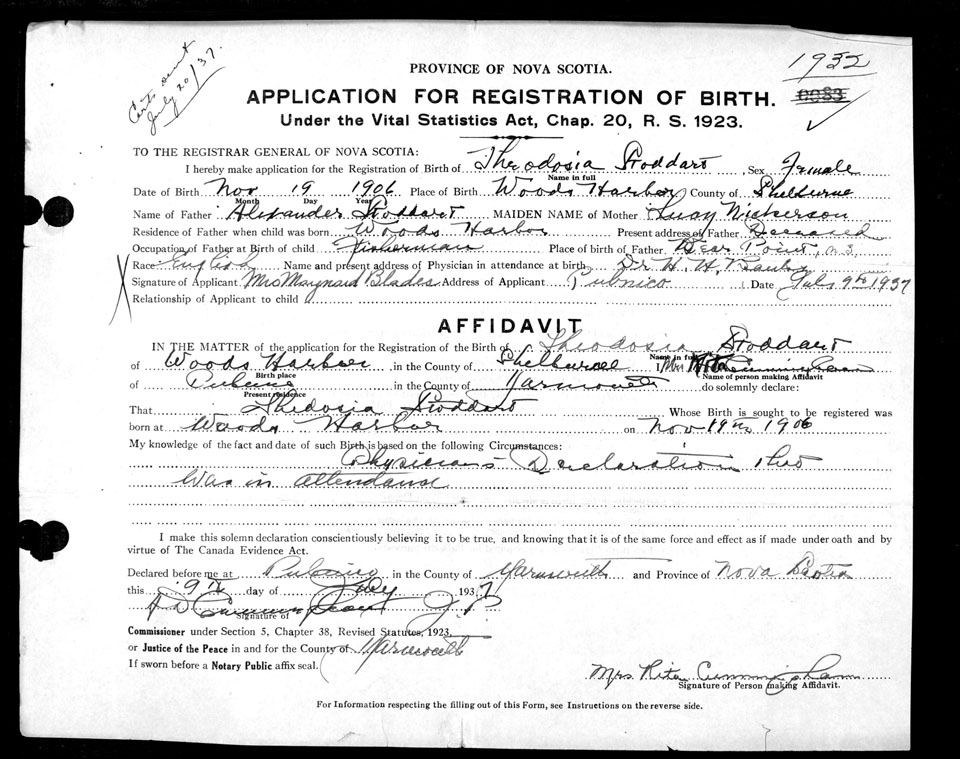 1932
July 20/37.
PROVINCE OF NOVA SCOTIA.
APPLICATION FOR REGISTRATION OF BIRTH.
Under the Vital Statistics Act, Chap. 20, R. S. 1923.
TO THE REGISTRAR GENERAL OF NOVA SCOTIA:
I hereby make application for the Registration of Birth of Theodosia Stoddart Sex Female
Name in full
Date of Birth Nov 19 1906 Place of Birth Woods Harbor County of Shelburne
Month Day Year
Name of Father Alexander Stoddart MAIDEN NAME of Mother Nickerson
Residence of Father when child was born Woods Harbor Present address of Father Deceased
Occupation of Father at Birth of child Fisherman Place of birth of Father Bear Point, N.S.
Race English Name and present address of Physician in attendance at birth Dr H. H.
Signature of Applicant Mrs Maynard Blades Address of Applicant Pubnico Date July 9th 1937
Relationship of Applicant to child
AFFIDAVIT
IN THE MATTER of the application for the Registration of the Birth of Theodosia Stoddart
Name in full
of Woods Harbor in the County of Shelburne I Mrs Rita Cunningham
Birth place Name of person making Affidavit
of Pubnico in the County of Yarmouth do solemnly declare:
Present residence
That Thedosia Stoddart Whose Birth is sought to be registered was
born at Woods Harbor on Nov 19th 1906
My knowledge of the fact and date of such Birth is based on the following Circumstances:
Physicians Declaration that
Was in attendance
I make this solemn declaration conscientiously believing it to be true, and knowing that it is of the same force and effect as if made under oath and by
virtue of The Canada Evidence Act.
Declared before me at Pubnico in the County of Yarmouth and Province of Nova Scotia
this 9th day of July 1937
Cunningham J.P.
Signature of
Commissioner under Section 5, Chapter 38, Revised Statutes, 1923.
or Justice of the Peace in and for the County of Yarmouth
If sworn before a Notary Public affix seal.
Mrs. Rita Cunningham
Signature of Person making Affidavit.
For Information respecting the filling out of this Form, see Instructions on the reverse side.